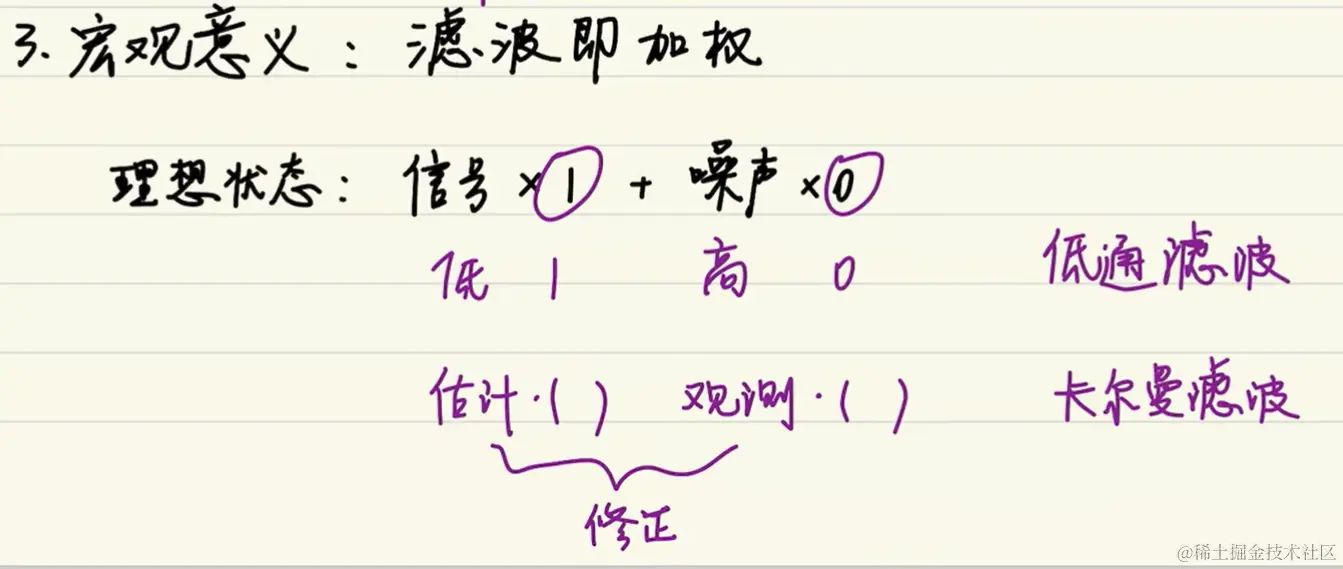 3. 宏观意义：滤波即加权
理想状态：信号×1 + 噪声×0
低 1 高 0 低通滤波
估计·( ) 观测·( ) 卡尔曼滤波
修正
@稀土掘金技术社区